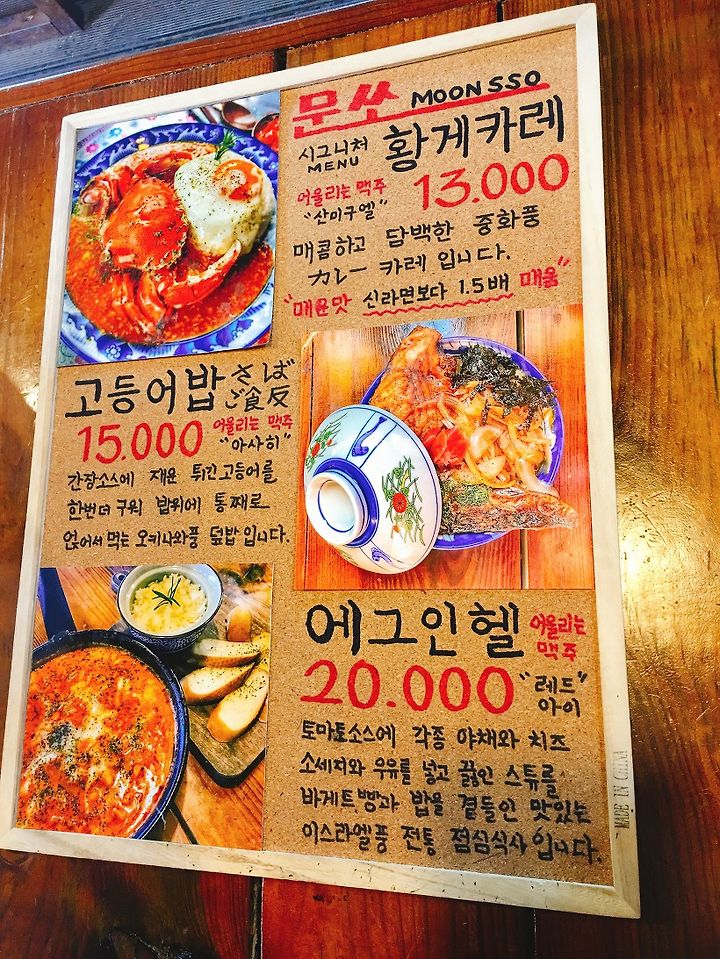 문쏘 MOONSSO
시그니처 MENU 황게카레
어울리는 맥주 "산미구엘" 13.000
매콤하고 담백한 중화풍
カレー 카레입니다.
"매운맛 신라면보다 1.5배 매움"
고등어밥 さばご食反
15.000 어울리는 맥주 "아사히"
간장소스에 재운 튀긴고등어를
한번더 구워 밥위에 통째로
얹어서먹는 오키나와풍 덮밥입니다.
에그인헬 어울리는 맥주
20.000 "레드"아이
토마토소스에 각종 야채와 치즈
소세지와 우유를 넣고 끓인 스튜를
바게트빵과 밥을 곁들인 맛있는
이스라엘풍 전통 점심식사입니다.
MADE IN CHINA